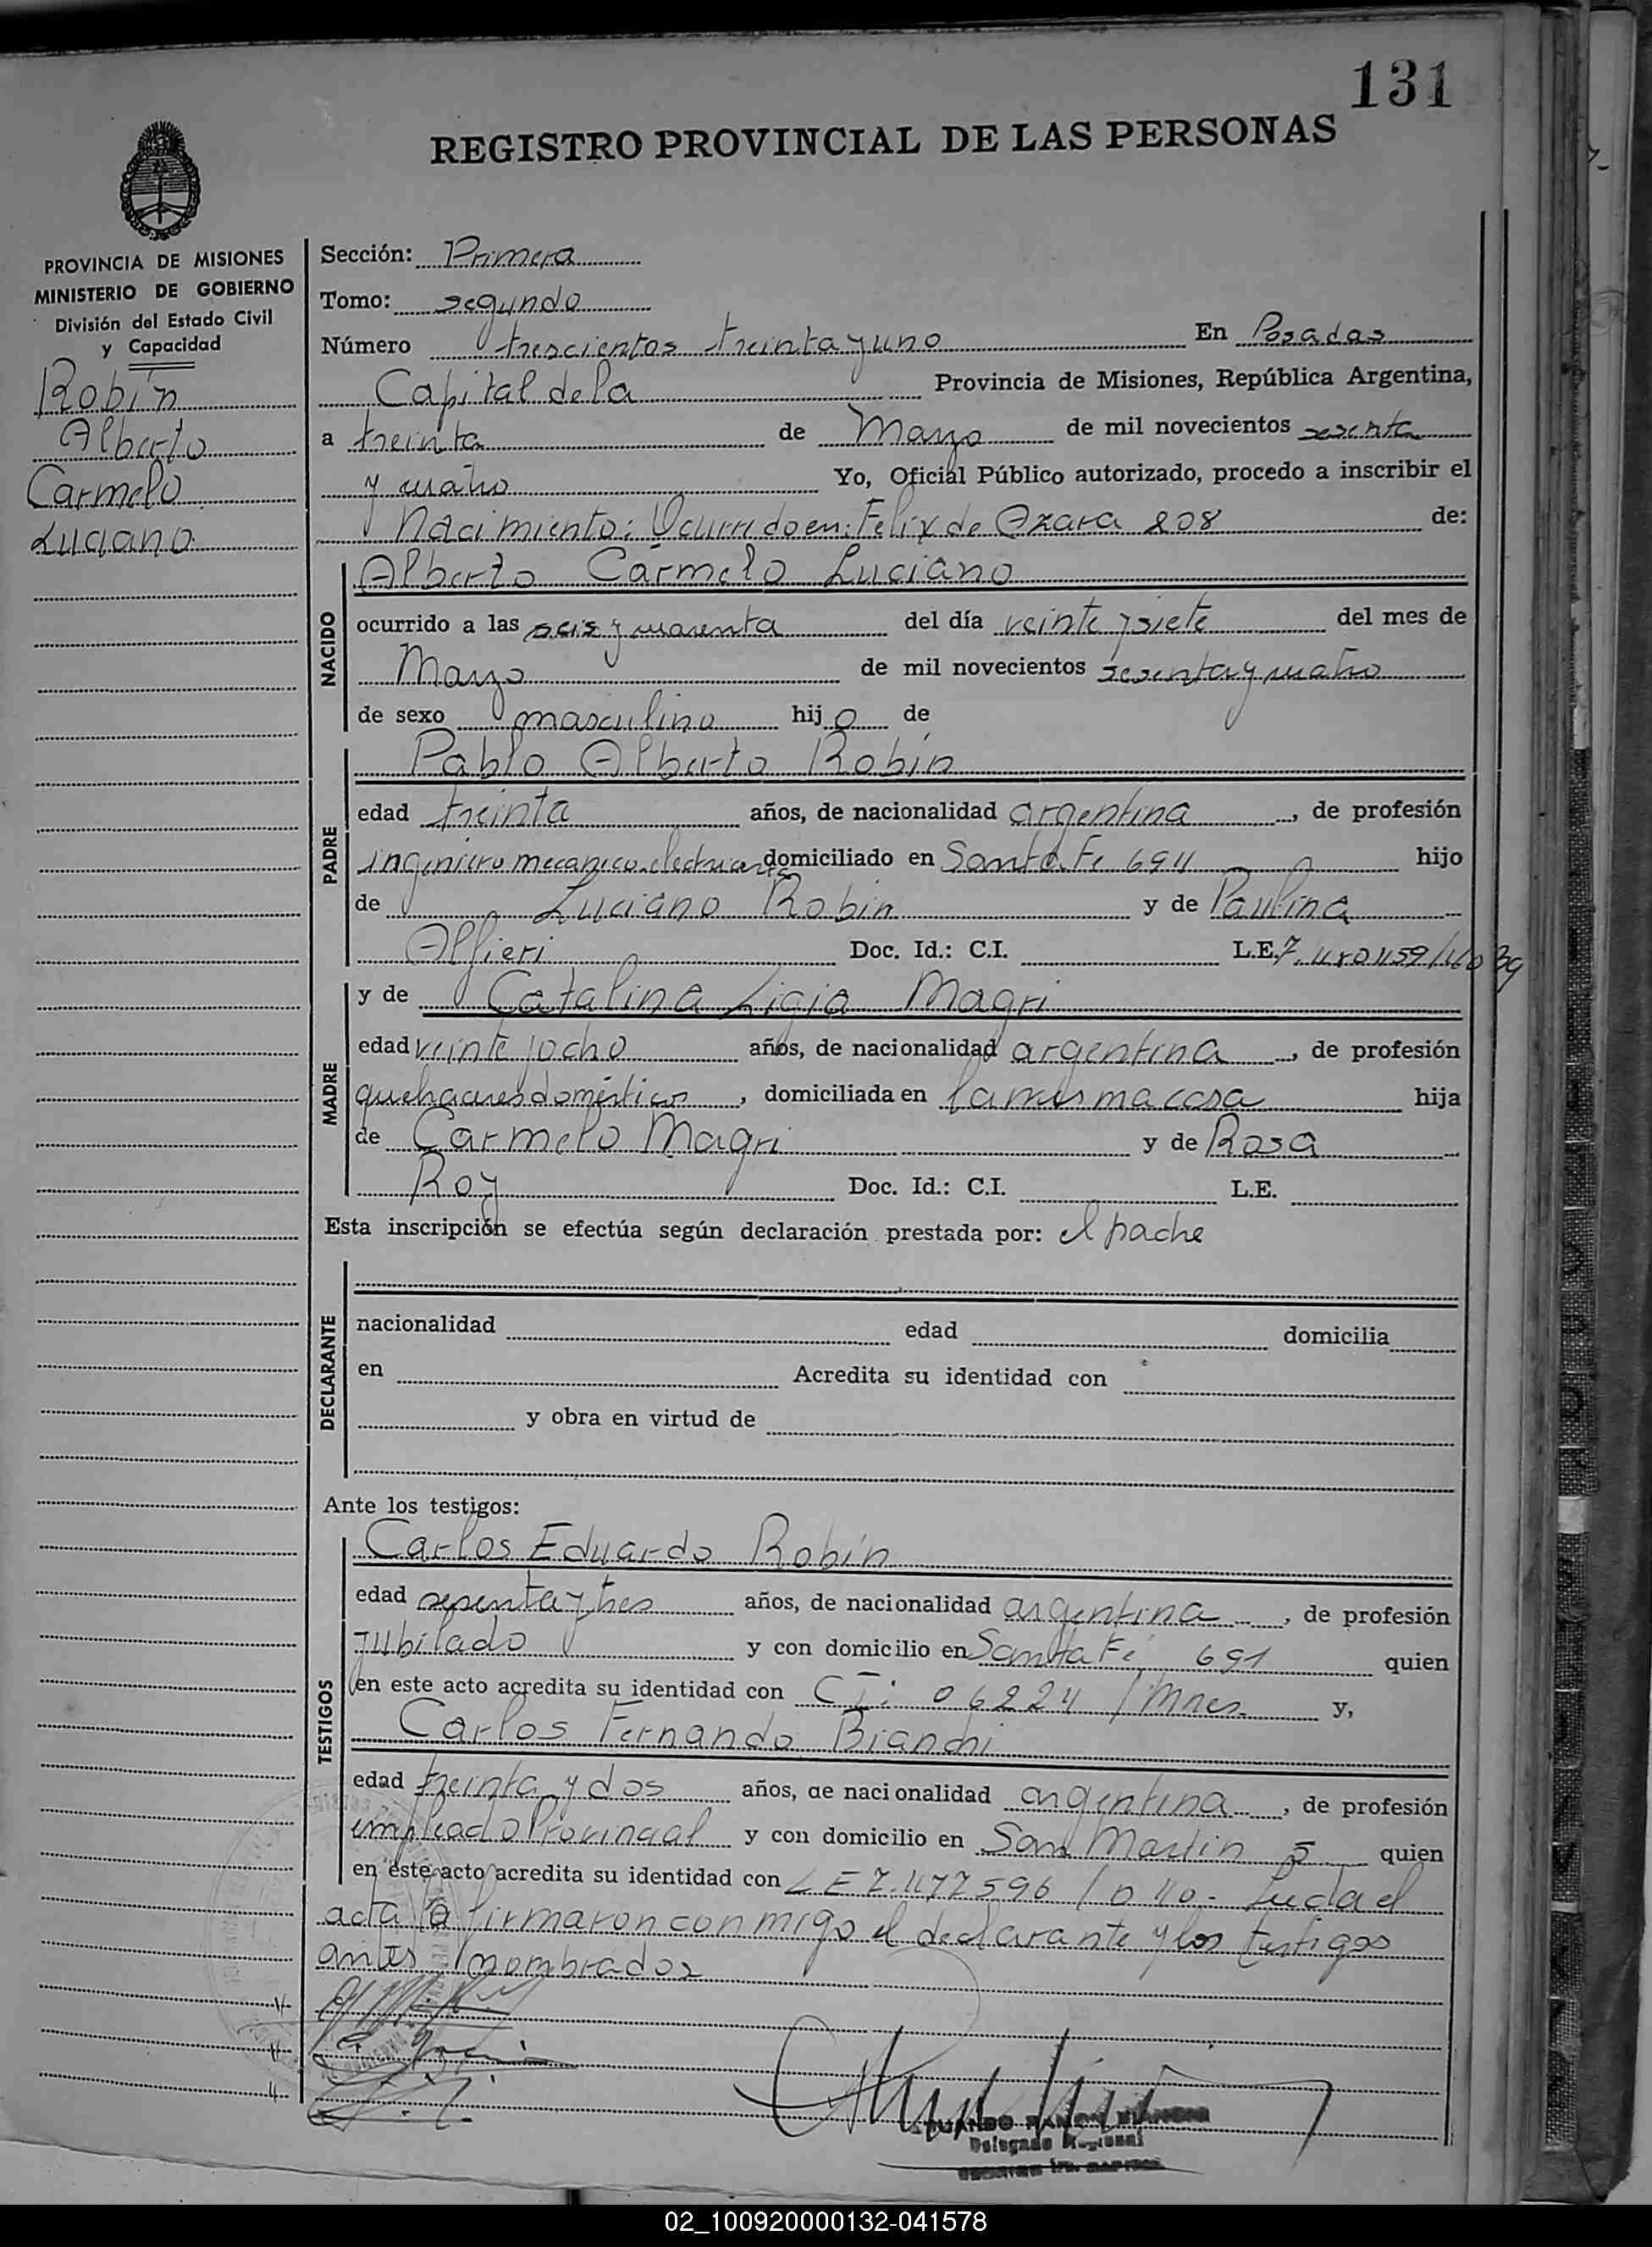 131
REGISTRO PROVINCIAL DE LAS PERSONAS
PROVINCIA DE MISIONES
MINISTERIO DE GOBIERNO
División del Estado Civil
y Capacidad
Robín
Alberto
Carmelo
Luciano
Sección: Primera
Tomo: segundo
Número trescientos treinta y uno En Posadas
Capital de la Provincia de Misiones, República Argentina,
a treinta de Marzo de mil novecientos sesenta
y cuatro Yo, Oficial Público autorizado, procedo a inscribir el
Nacimiento: Ocurrido en: Felix de Azara 208 de:
NACIDO
Alberto Carmelo Luciano
ocurrido a las seis y cuarenta del día veinte y siete del mes de
Marzo de mil novecientos sesenta y cuatro
de sexo masculino hijo de
PADRE
Pablo Alberto Robín
edad treinta años, de nacionalidad argentina, de profesión
ingeniero mecanico electricista domiciliado en Santa Fe 694 hijo
de Luciano Robin y de Paulina
Alfieri Doc. Id.: C.I. L.E.
MADRE
y de Catalina Ligia Magri
edad veinte y ocho años, de nacionalidad argentina, de profesión
quehaceres domésticos, domiciliada en la misma casa hija
de Carmelo Magri y de Rosa
Roy Doc. Id.: C.I. L.E.
Esta inscripción se efectúa según declaración prestada por: el padre
DECLARANTE
nacionalidad edad domicilia
en Acredita su identidad con
y obra en virtud de
Ante los testigos:
TESTIGOS
Carlos Eduardo Robín
edad y tres años, de nacionalidad argentina, de profesión
jubilado y con domicilio en Santa Fé 691 quien
en este acto acredita su identidad con CI: 06224 / Mnes. y,
Carlos Fernando Bianchi
edad treinta y dos años, de nacionalidad argentina, de profesión
empleado Provincial y con domicilio en San Martin 5 quien
en este acto acredita su identidad con LE 7.477596 / D 40.- Leida el
acta la firmaron conmigo el declarante y los testigos
antes nombrados
Delegado Regional
02_100920000132-041578